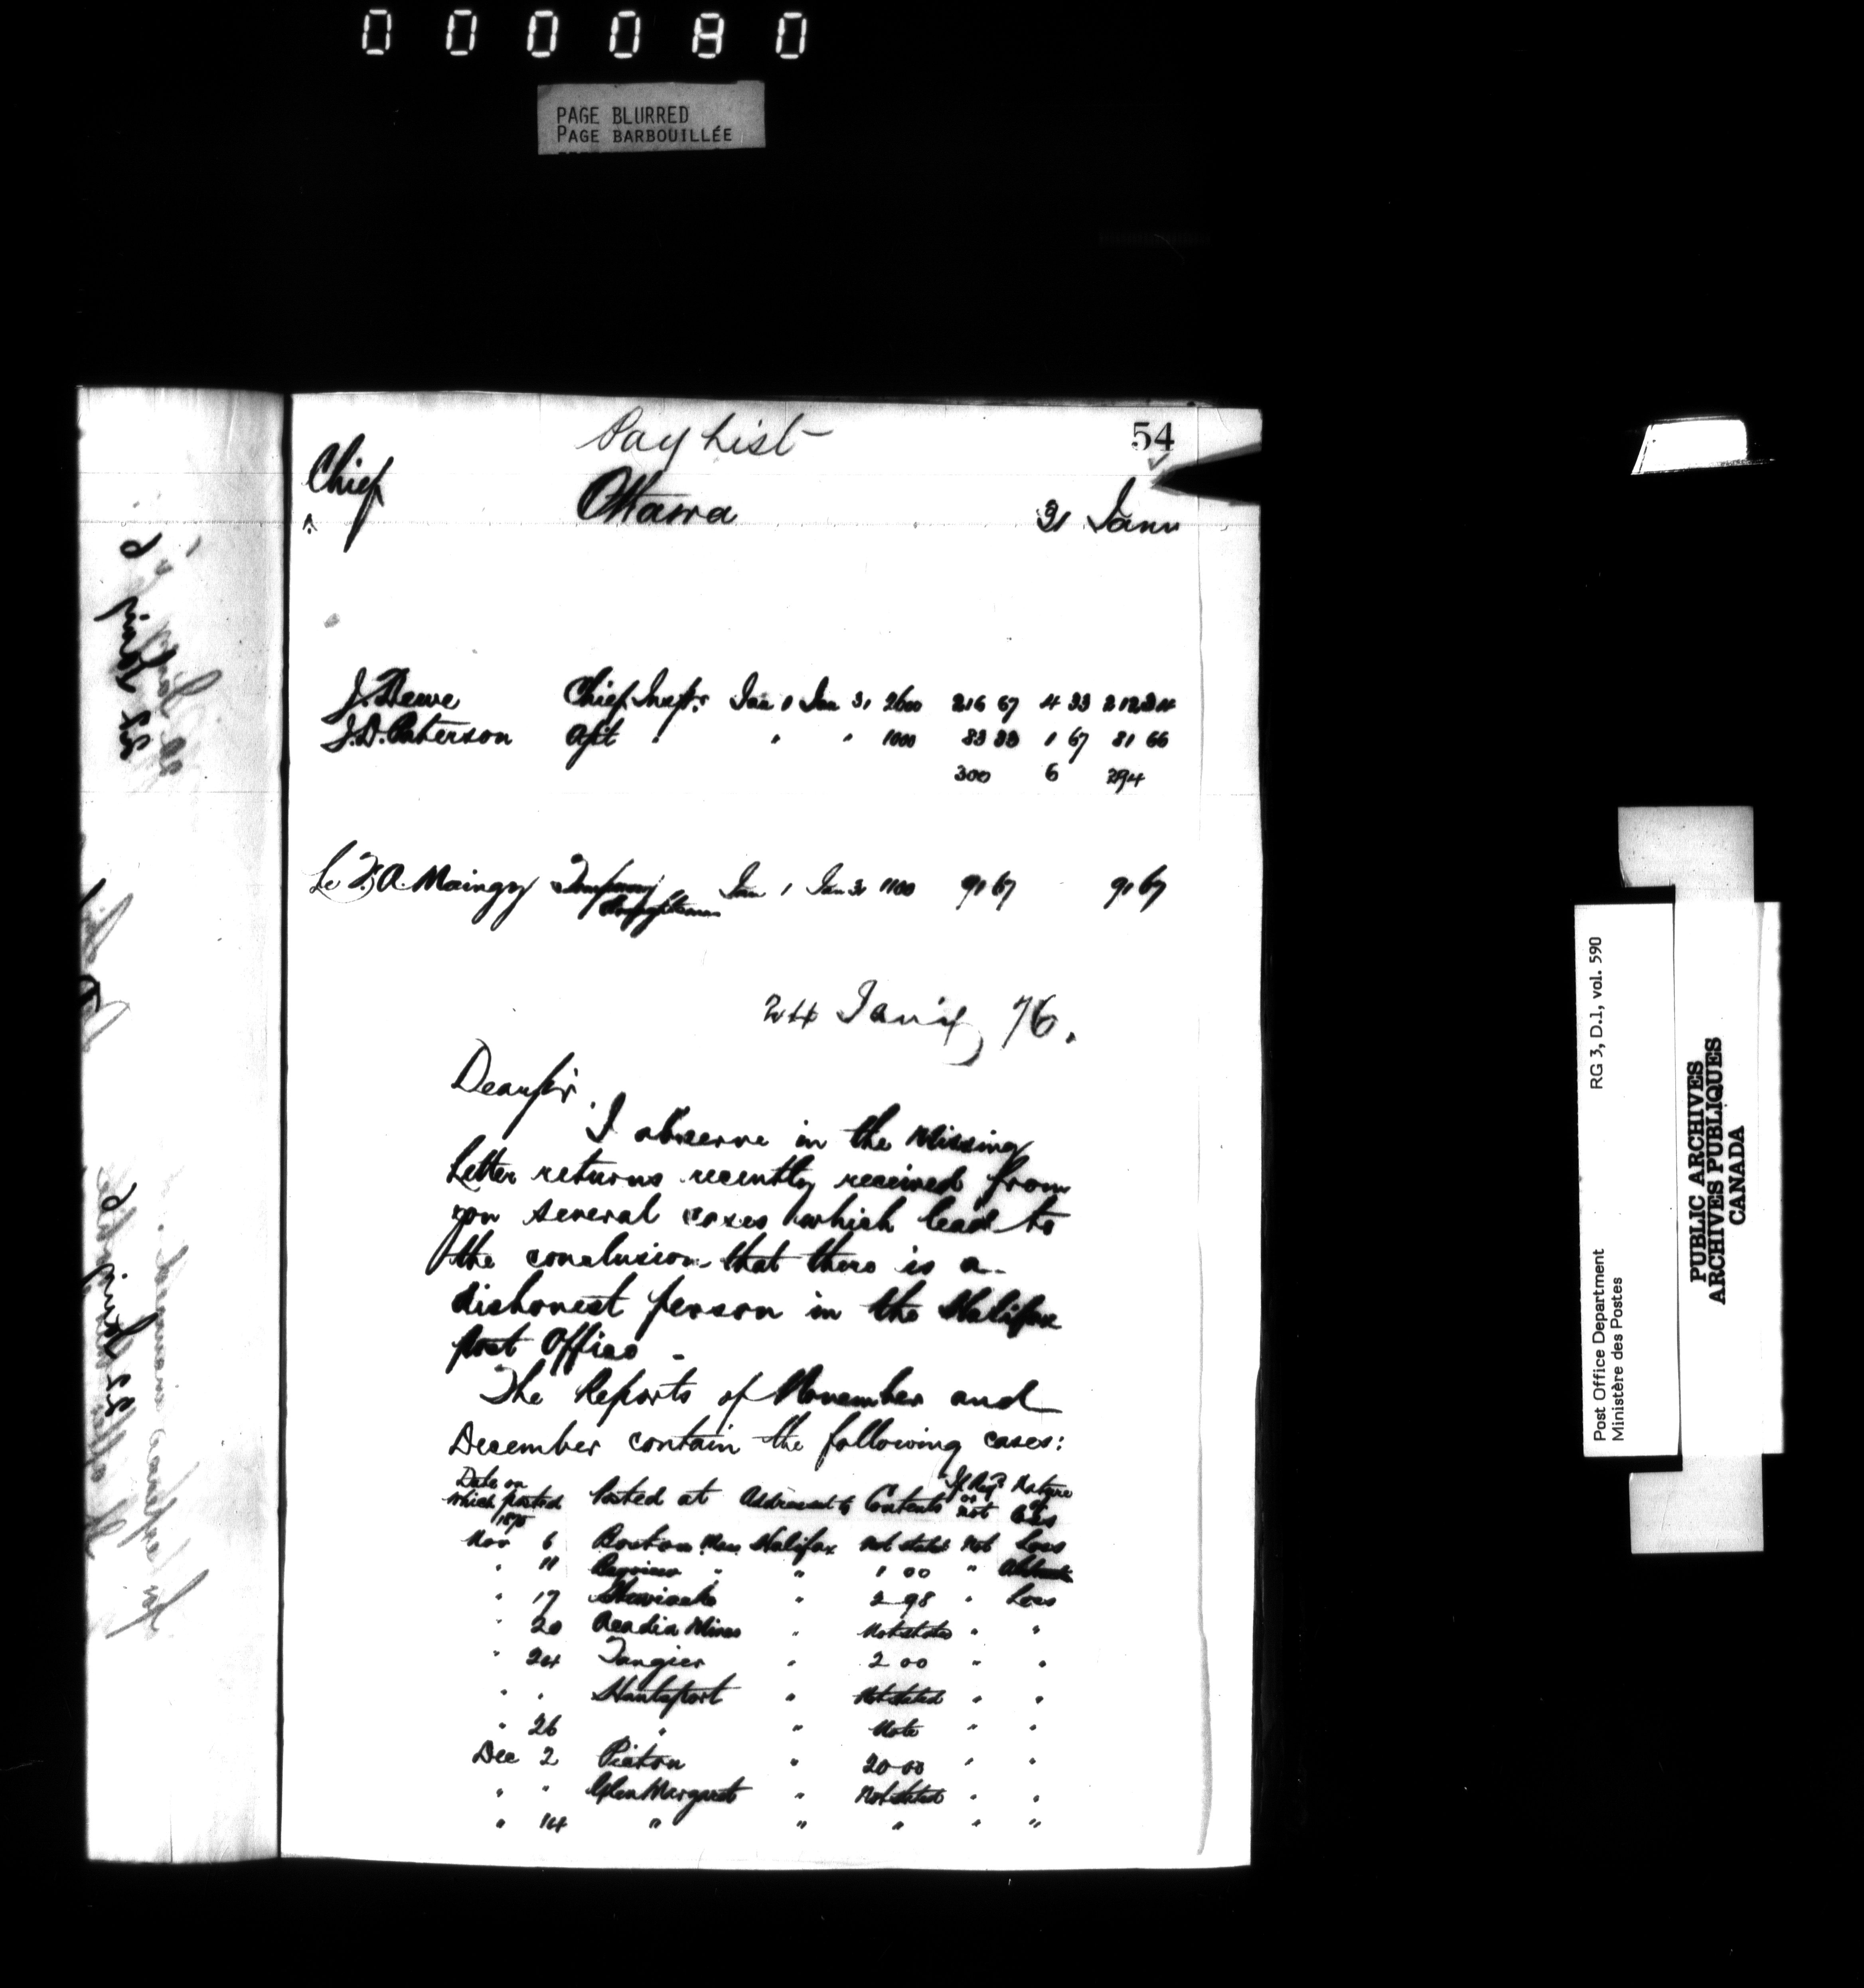 000080
PAGE BLURRED
PAGE BARBOUILLÉE
Pay List
54
Chief
Ottawa 31 Janu
J. Dewe Chief Inspr. Jan 1 Jan 31 2600 216 67 4 33 212 34
J. D. Paterson Asst " " " 1000 83 33 1 67 81 66
300 6 294
Le F. A. Maingy Temporary Jan 1 Jan 31 1100 91 67 91 67
24 Jan'y 76.
Dear Sir.
I observe in the Missing
Letter returns recently received from
you several cases which lead to
the conclusion that there is a
dishonest person in the Halifax
post Office -
The Reports of November and
December contain the following cases:
Date on which posted 1875 Posted at Addressed to Contents If Regd or not Nature of Case
Nov 6 Boston Mass Halifax Not stated Not Loss
" 11 " " 1 00 "
" 17 Stewiacke " 2 98 " Loss
" 20 Acadia Mines " Not stated " "
" 24 Tangier " 2 00 " "
" " Hantsport " Not stated " "
" 26 " " Note " "
Dec 2 Pictou " 20 00 " "
" " Glen Margaret " Not stated " "
" 14 " " " " "
Post Office Department RG 3, D.1, vol. 590
Ministère des Postes
PUBLIC ARCHIVES
ARCHIVES PUBLIQUES
CANADA